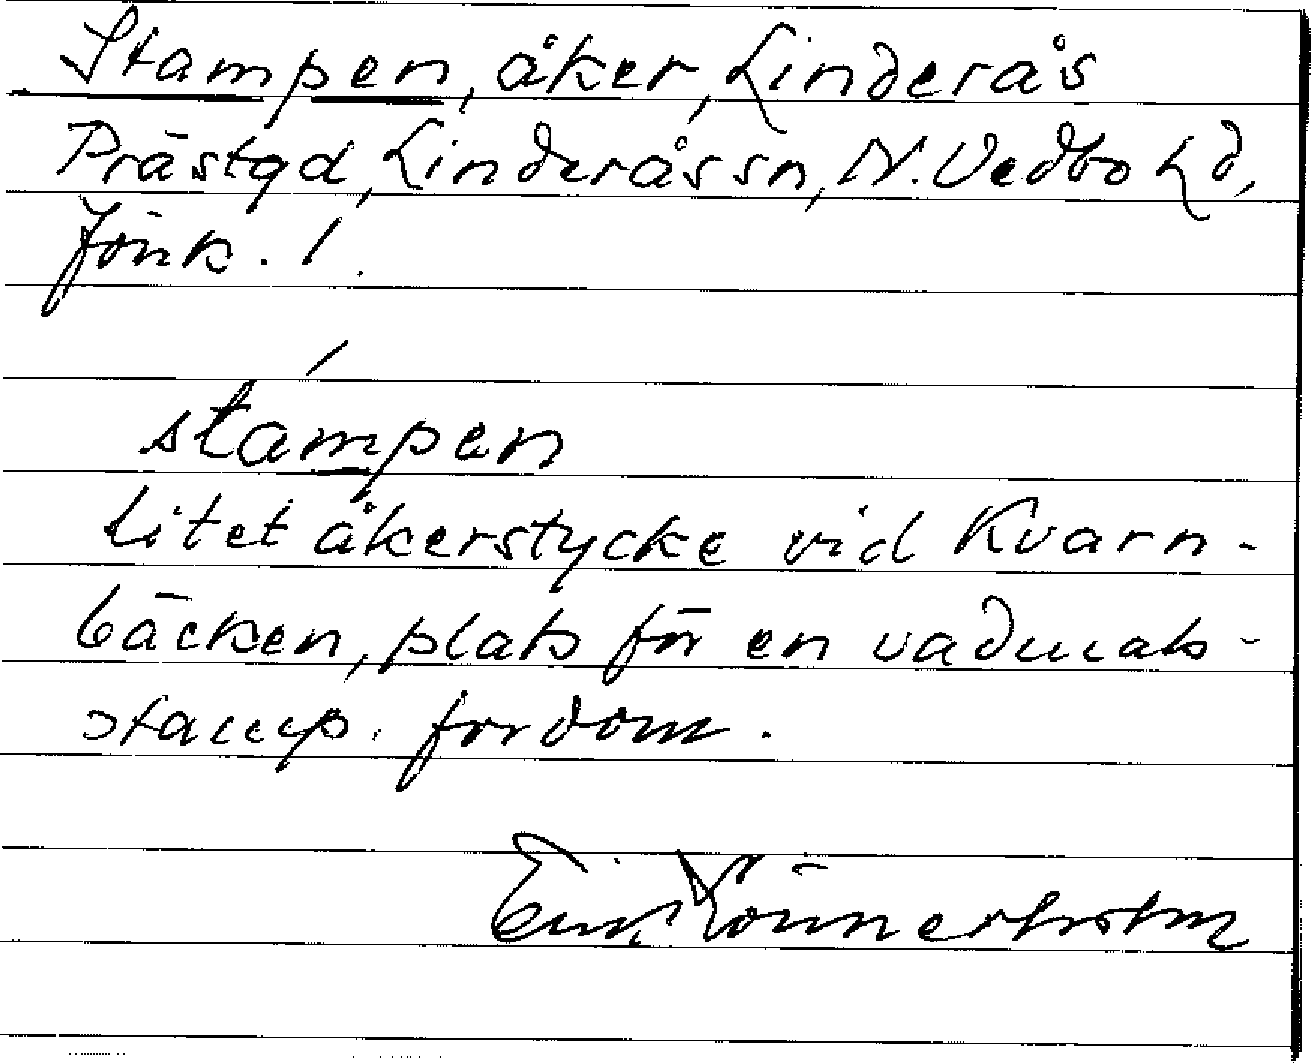 Stampen, åker, Linderås
Prästgd, Linderås sn, N. Vedbo hd,
Jönk. l.
stampen
Litet åkerstycke vid Kvarn-
bäcken, plats för en vadmals-
stamp. fordom.
Erik Lönnerholm